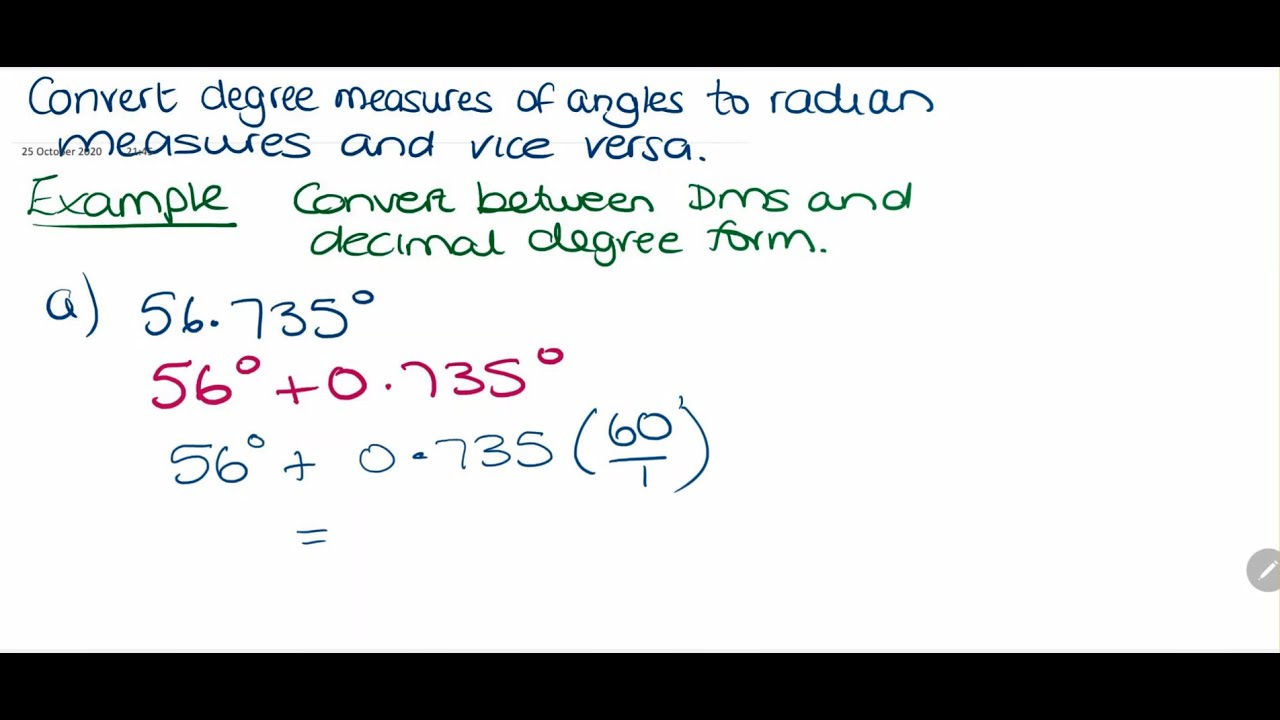 Convert degree measures of angles to radian
measures and vice versa.
25 October 2020 21:45
Example Convert between DMS and
decimal degree form.
a) 56.735°
56° + 0.735°
56° + 0.735 (60'/1)
=